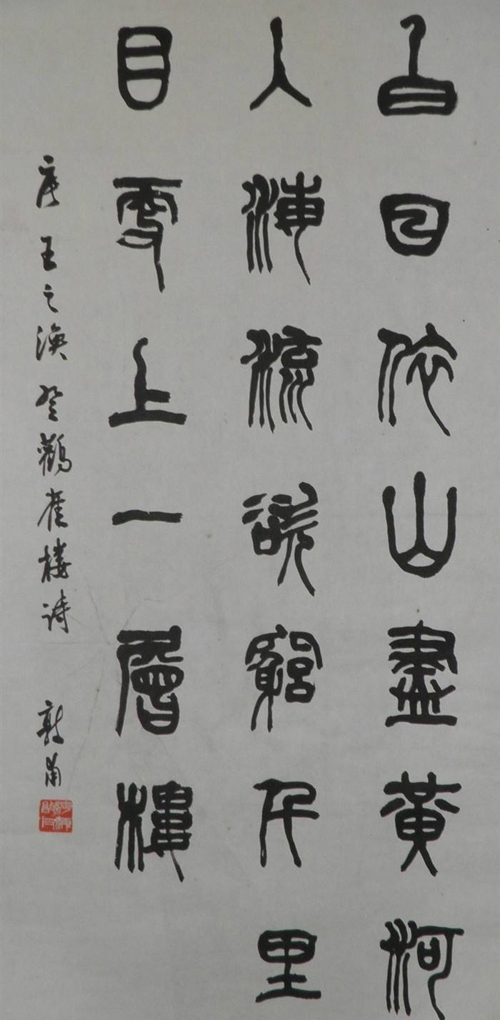 白日依山盡黃河
入海流欲窮千里
目更上一層樓
唐王之渙登鸛雀樓詩